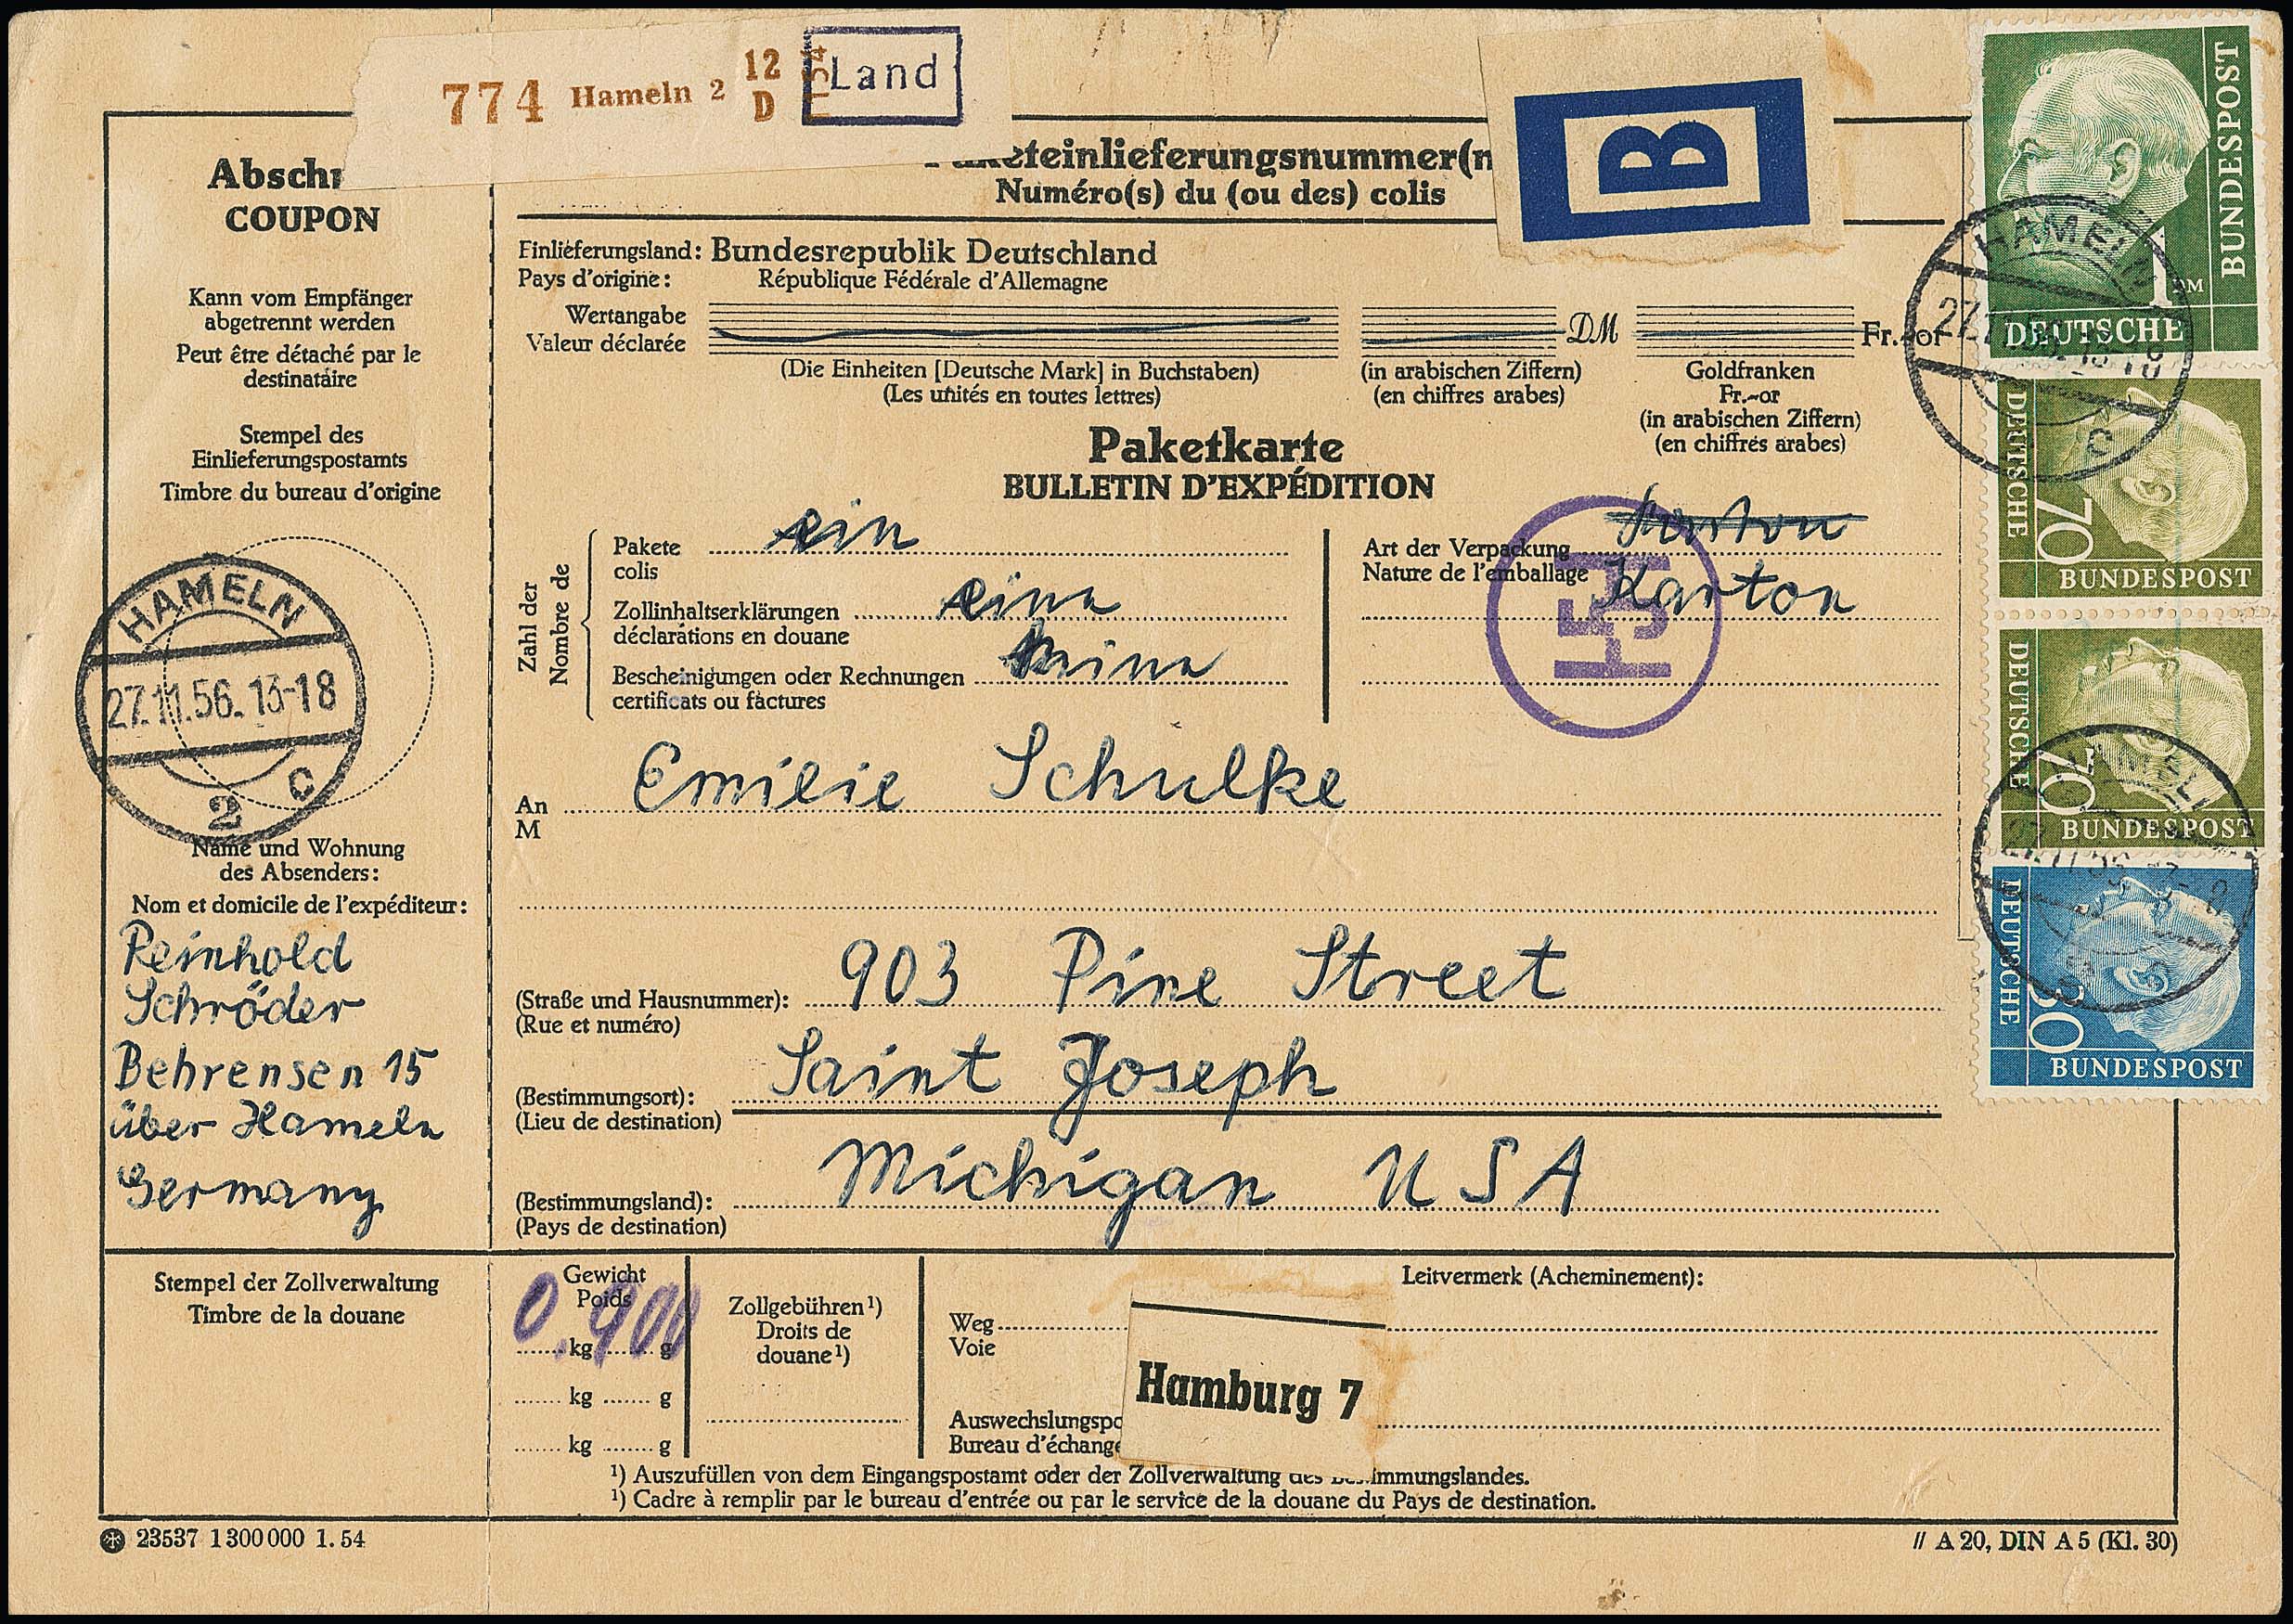 774 Hameln 2 12 D
Land
B
Abschn
COUPON
Kann vom Empfänger
abgetrennt werden
Peut être détaché par le
destinataire
Stempel des
Einlieferungspostamts
Timbre du bureau d'origine
HAMELN
27.11.56.13-18
2 c
Name und Wohnung
des Absenders:
Nom et domicile de l'expéditeur:
Reinhold
Schröder
Behrensen 15
über Hameln
Germany
Stempel der Zollverwaltung
Timbre de la douane
keteinlieferungsnummer(n
Numéro(s) du (ou des) colis
Einlieferungsland: Bundesrepublik Deutschland
Pays d'origine: République Fédérale d'Allemagne
Wertangabe DM Fr.-or
Valeur déclarée
(Die Einheiten [Deutsche Mark] in Buchstaben) (in arabischen Ziffern) Goldfranken
(Les unités en toutes lettres) (en chiffres arabes) Fr.-or
(in arabischen Ziffern)
(en chiffres arabes)
Paketkarte
BULLETIN D'EXPÉDITION
Zahl der
Nombre de
Pakete ein
colis
Zollinhaltserklärungen eine
déclarations en douane
Bescheinigungen oder Rechnungen keine
certificats ou factures
Art der Verpackung Karton
Nature de l'emballage Karton
An Emilie Schulke
M
(Straße und Hausnummer): 903 Pine Street
(Rue et numéro)
(Bestimmungsort): Saint Joseph
(Lieu de destination)
(Bestimmungsland): Michigan USA
(Pays de destination)
Gewicht
Poids
0,900
kg g
kg g
kg g
Zollgebühren¹)
Droits de
douane¹)
Leitvermerk (Acheminement):
Weg
Voie
Hamburg 7
Auswechslungspo
Bureau d'échange
¹) Auszufüllen von dem Eingangspostamt oder der Zollverwaltung des Bestimmungslandes.
¹) Cadre à remplir par le bureau d'entrée ou par le service de la douane du Pays de destination.
23537 1 300 000 1. 54
// A 20, DIN A 5 (Kl. 30)
DEUTSCHE BUNDESPOST
1 DM
HAMELN
c
DEUTSCHE BUNDESPOST
70
DEUTSCHE BUNDESPOST
70
DEUTSCHE BUNDESPOST
30